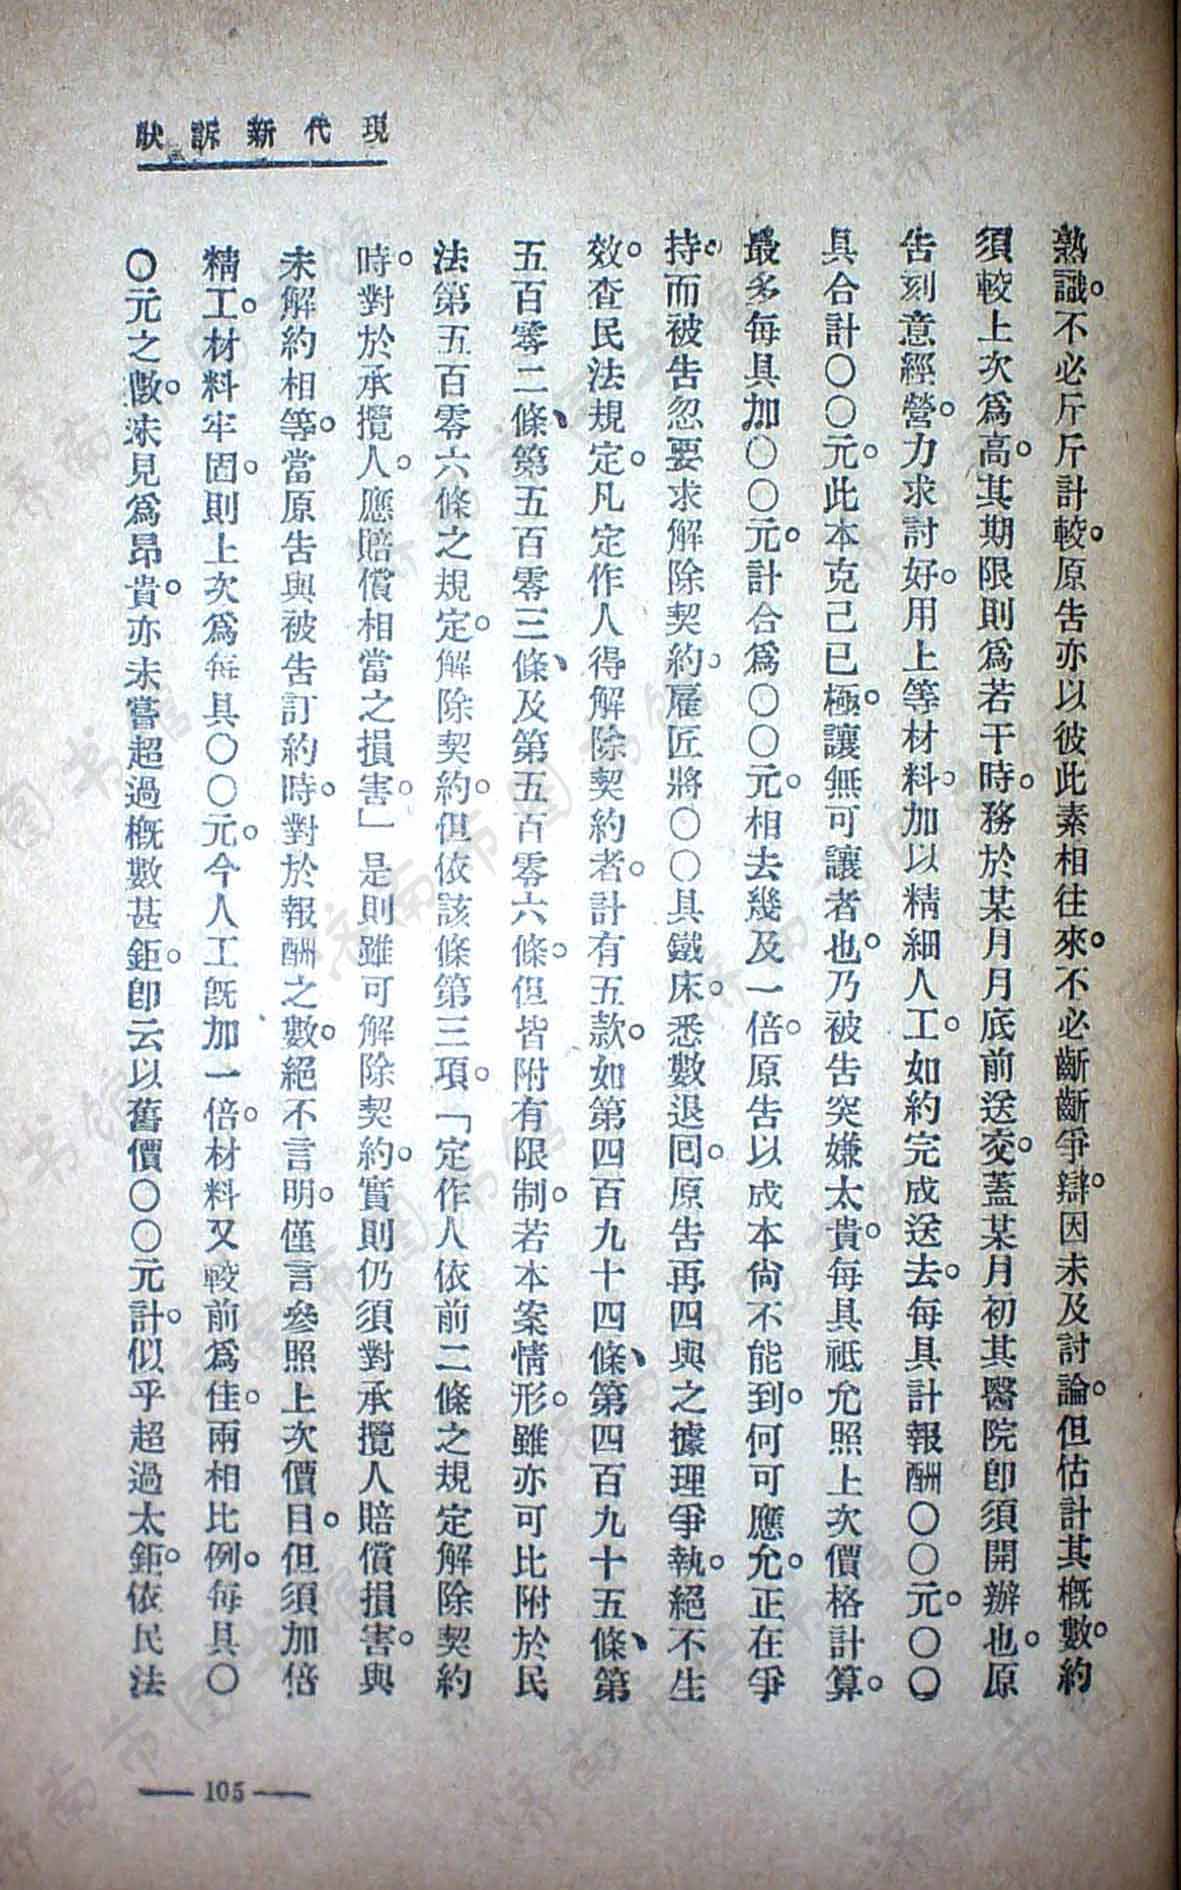 現代新訴狀
熟識。不必斤斤計較。原告亦以彼此素相往來。不必斷斷爭辯。因未及討論。但估計其概數。約
須較上次爲高。其期限則爲若干時。務於某月月底前送交。蓋某月初其醫院卽須開辦也。原
告刻意經營。力求討好。用上等材料。加以精細人工。如約完成送去。每具計報酬〇〇元。〇〇
具合計〇〇元。此本克己已極。讓無可讓者也。乃被告突嫌太貴。每具祗允照上次價格計算。
最多每具加〇〇元。計合爲〇〇元。相去幾及一倍。原告以成本尙不能到。何可應允。正在爭
持。而被告忽要求解除契約。雇匠將〇〇具鐵床。悉數退回。原告再四與之據理爭執。絕不生
效。查民法規定。凡定作人得解除契約者。計有五款。如第四百九十四條、第四百九十五條、第
五百零二條、第五百零三條、及第五百零六條。但皆附有限制。若本案情形。雖亦可比附於民
法第五百零六條之規定。解除契約。但依該條第三項。「定作人依前二條之規定解除契約
時。對於承攬人。應賠償相當之損害。」是則雖可解除契約。實則仍須對承攬人賠償損害。與
未解約相等。當原告與被告訂約時。對於報酬之數。絕不言明。僅言參照上次價目。但須加倍
精工。材料牢固。則上次爲每具〇〇元。今人工旣加一倍。材料又較前爲佳。兩相比例。每具〇
〇元之數。未見爲昂貴。亦未嘗超過概數甚鉅。卽云以舊價〇〇元計。似乎超過太鉅。依民法
— 105 —
济南市图书馆